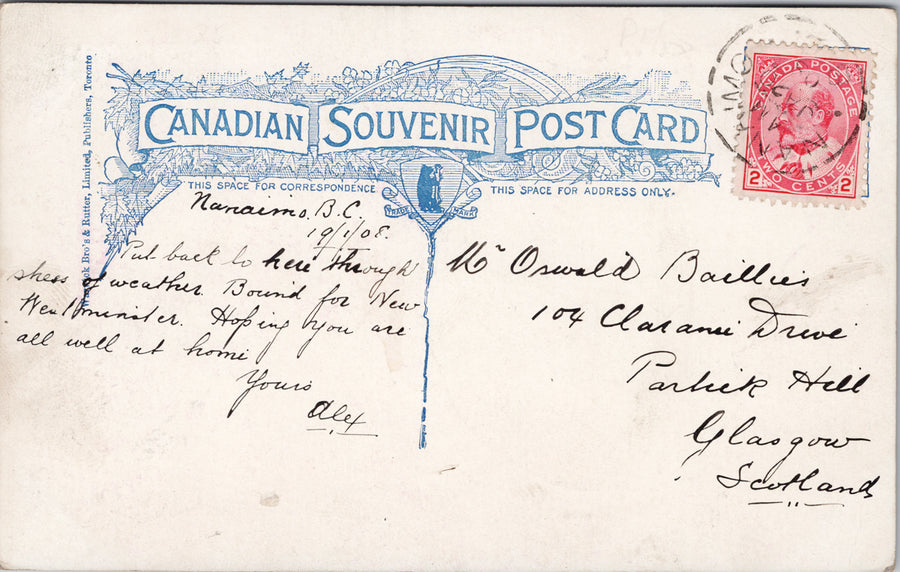 CANADIAN SOUVENIR POST CARD
THIS SPACE FOR CORRESPONDENCE
THIS SPACE FOR ADDRESS ONLY.
TRADE MARK
Warwick Bro's & Rutter, Limited, Publishers, Toronto
Nanaimo, B.C.
19/1/08.
Put back to here through
stress of weather. Bound for New
Westminster. Hoping you are
all well at home
Yours
Alex
Mr Oswald Baillie
104 Clarence Drive
Partick Hill
Glasgow
Scotland
CANADA POSTAGE
2 TWO CENTS 2